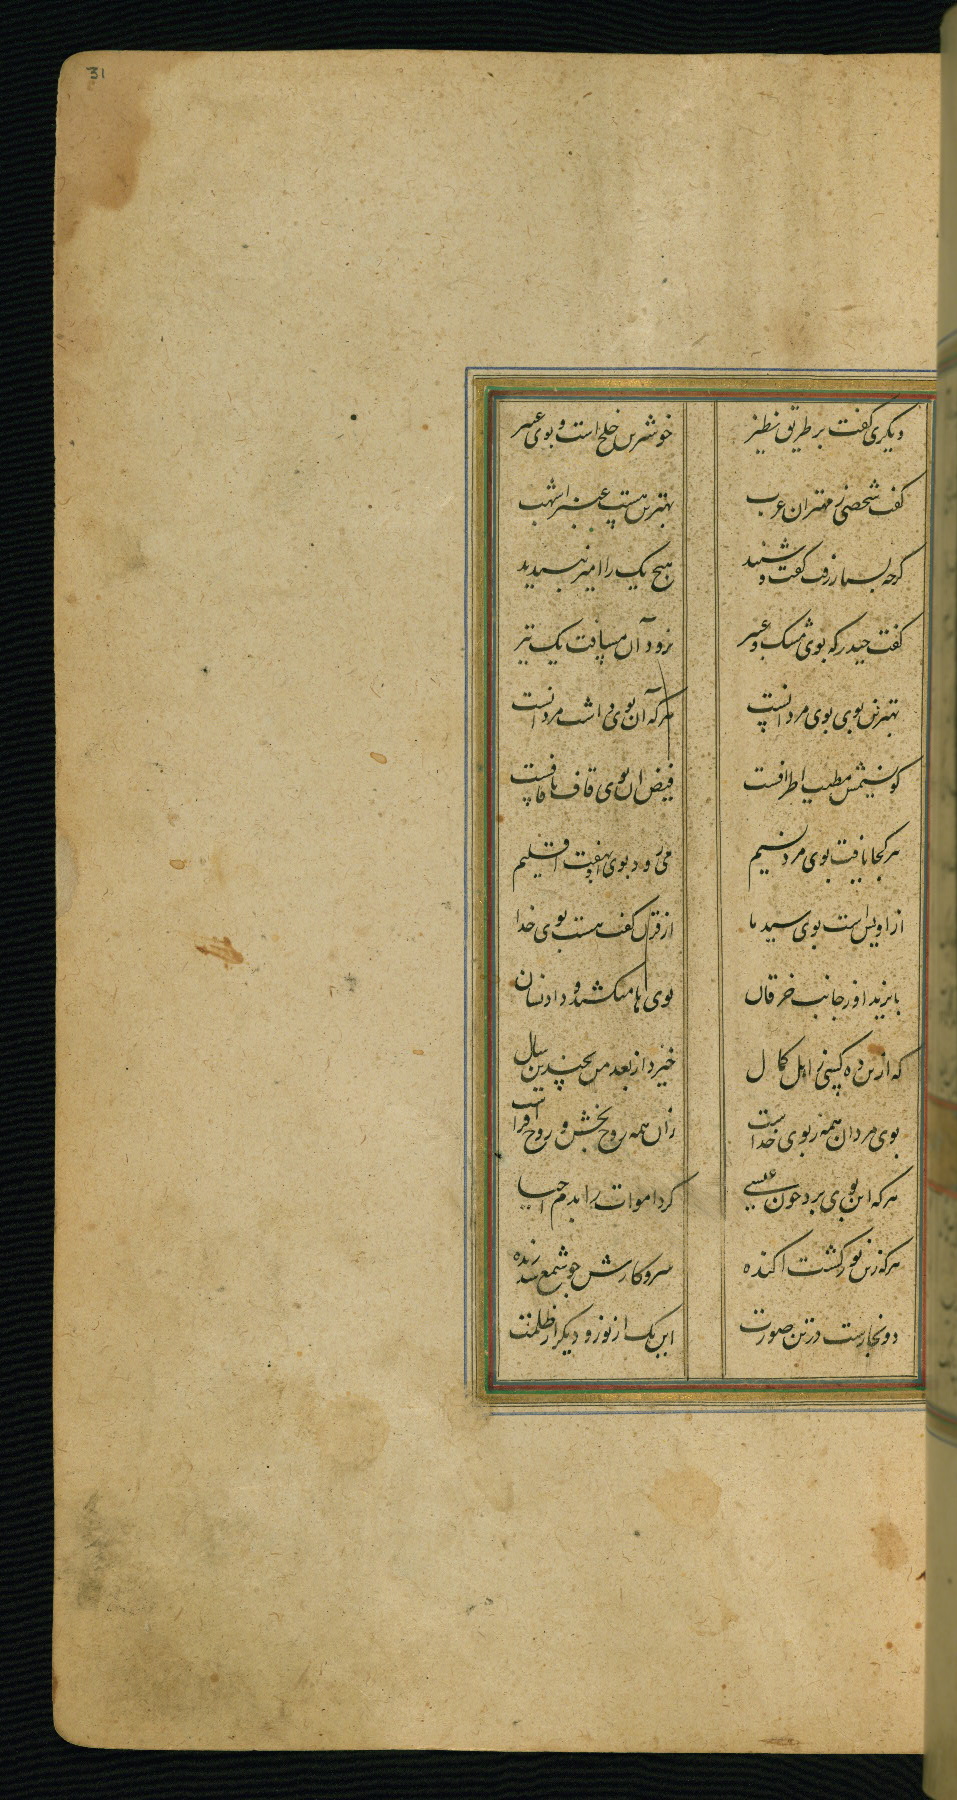 31
دیگری گفت بر طریق نظیر خوشترین خلخ است و بوی عبیر
گفت شخصی ز مهتران عرب بهترین هست عنبر اشهب
گرچه بسیار زرف گفت و شنید هیچ یک را امیر نپسندید
گفت حیدر که بوی مشک و عبیر نرود آن مسافت یک تیر
بهترین بوی بوی مردانست هرکه آن بوی داشت مرد آنست
کو نسیمش مطیب اطرافست فیض آن بوی قاف تا قافست
هر کجا یافت بوی مرد نسیم می رود بوی او بهفت اقلیم
از اویس است بوی سید ما از قرن گفت هست بوی خدا
بایزید او ز جانب خرقان بوی ها میکشید و داد نشان
که ازین ده کسی ز اهل کمال خیزد از بعد من بچندین سال
بوی مردان همه ز بوی خداست زان همه روح بخش و روح افزاست
هر که این بوی برد چون عیسی کرد اموات را بدم احیا
هر که زین نور گشت آکنده سر و کارش چو شمع شد زنده
دو بخارست در تن صورت این یک از نور و دیگر از ظلمت